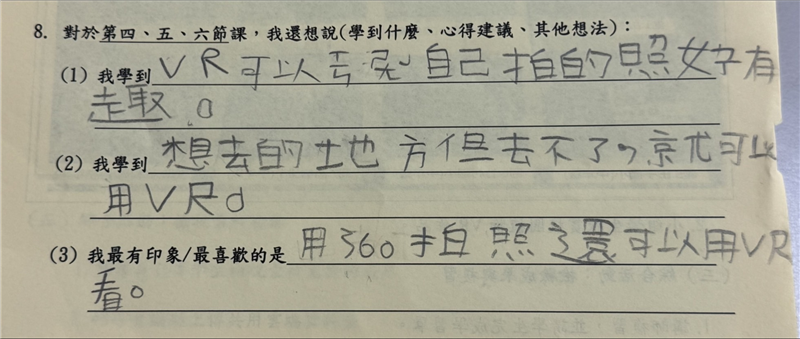 8. 對於第四、五、六節課，我還想說(學到什麼、心得建議、其他想法)：
(1) 我學到VR可以 自己拍的照好有
趣。
(2) 我學到想去的地方但去不了，就可以
用VR。
(3) 我最有印象/最喜歡的是用360拍照 還可以用VR
看。